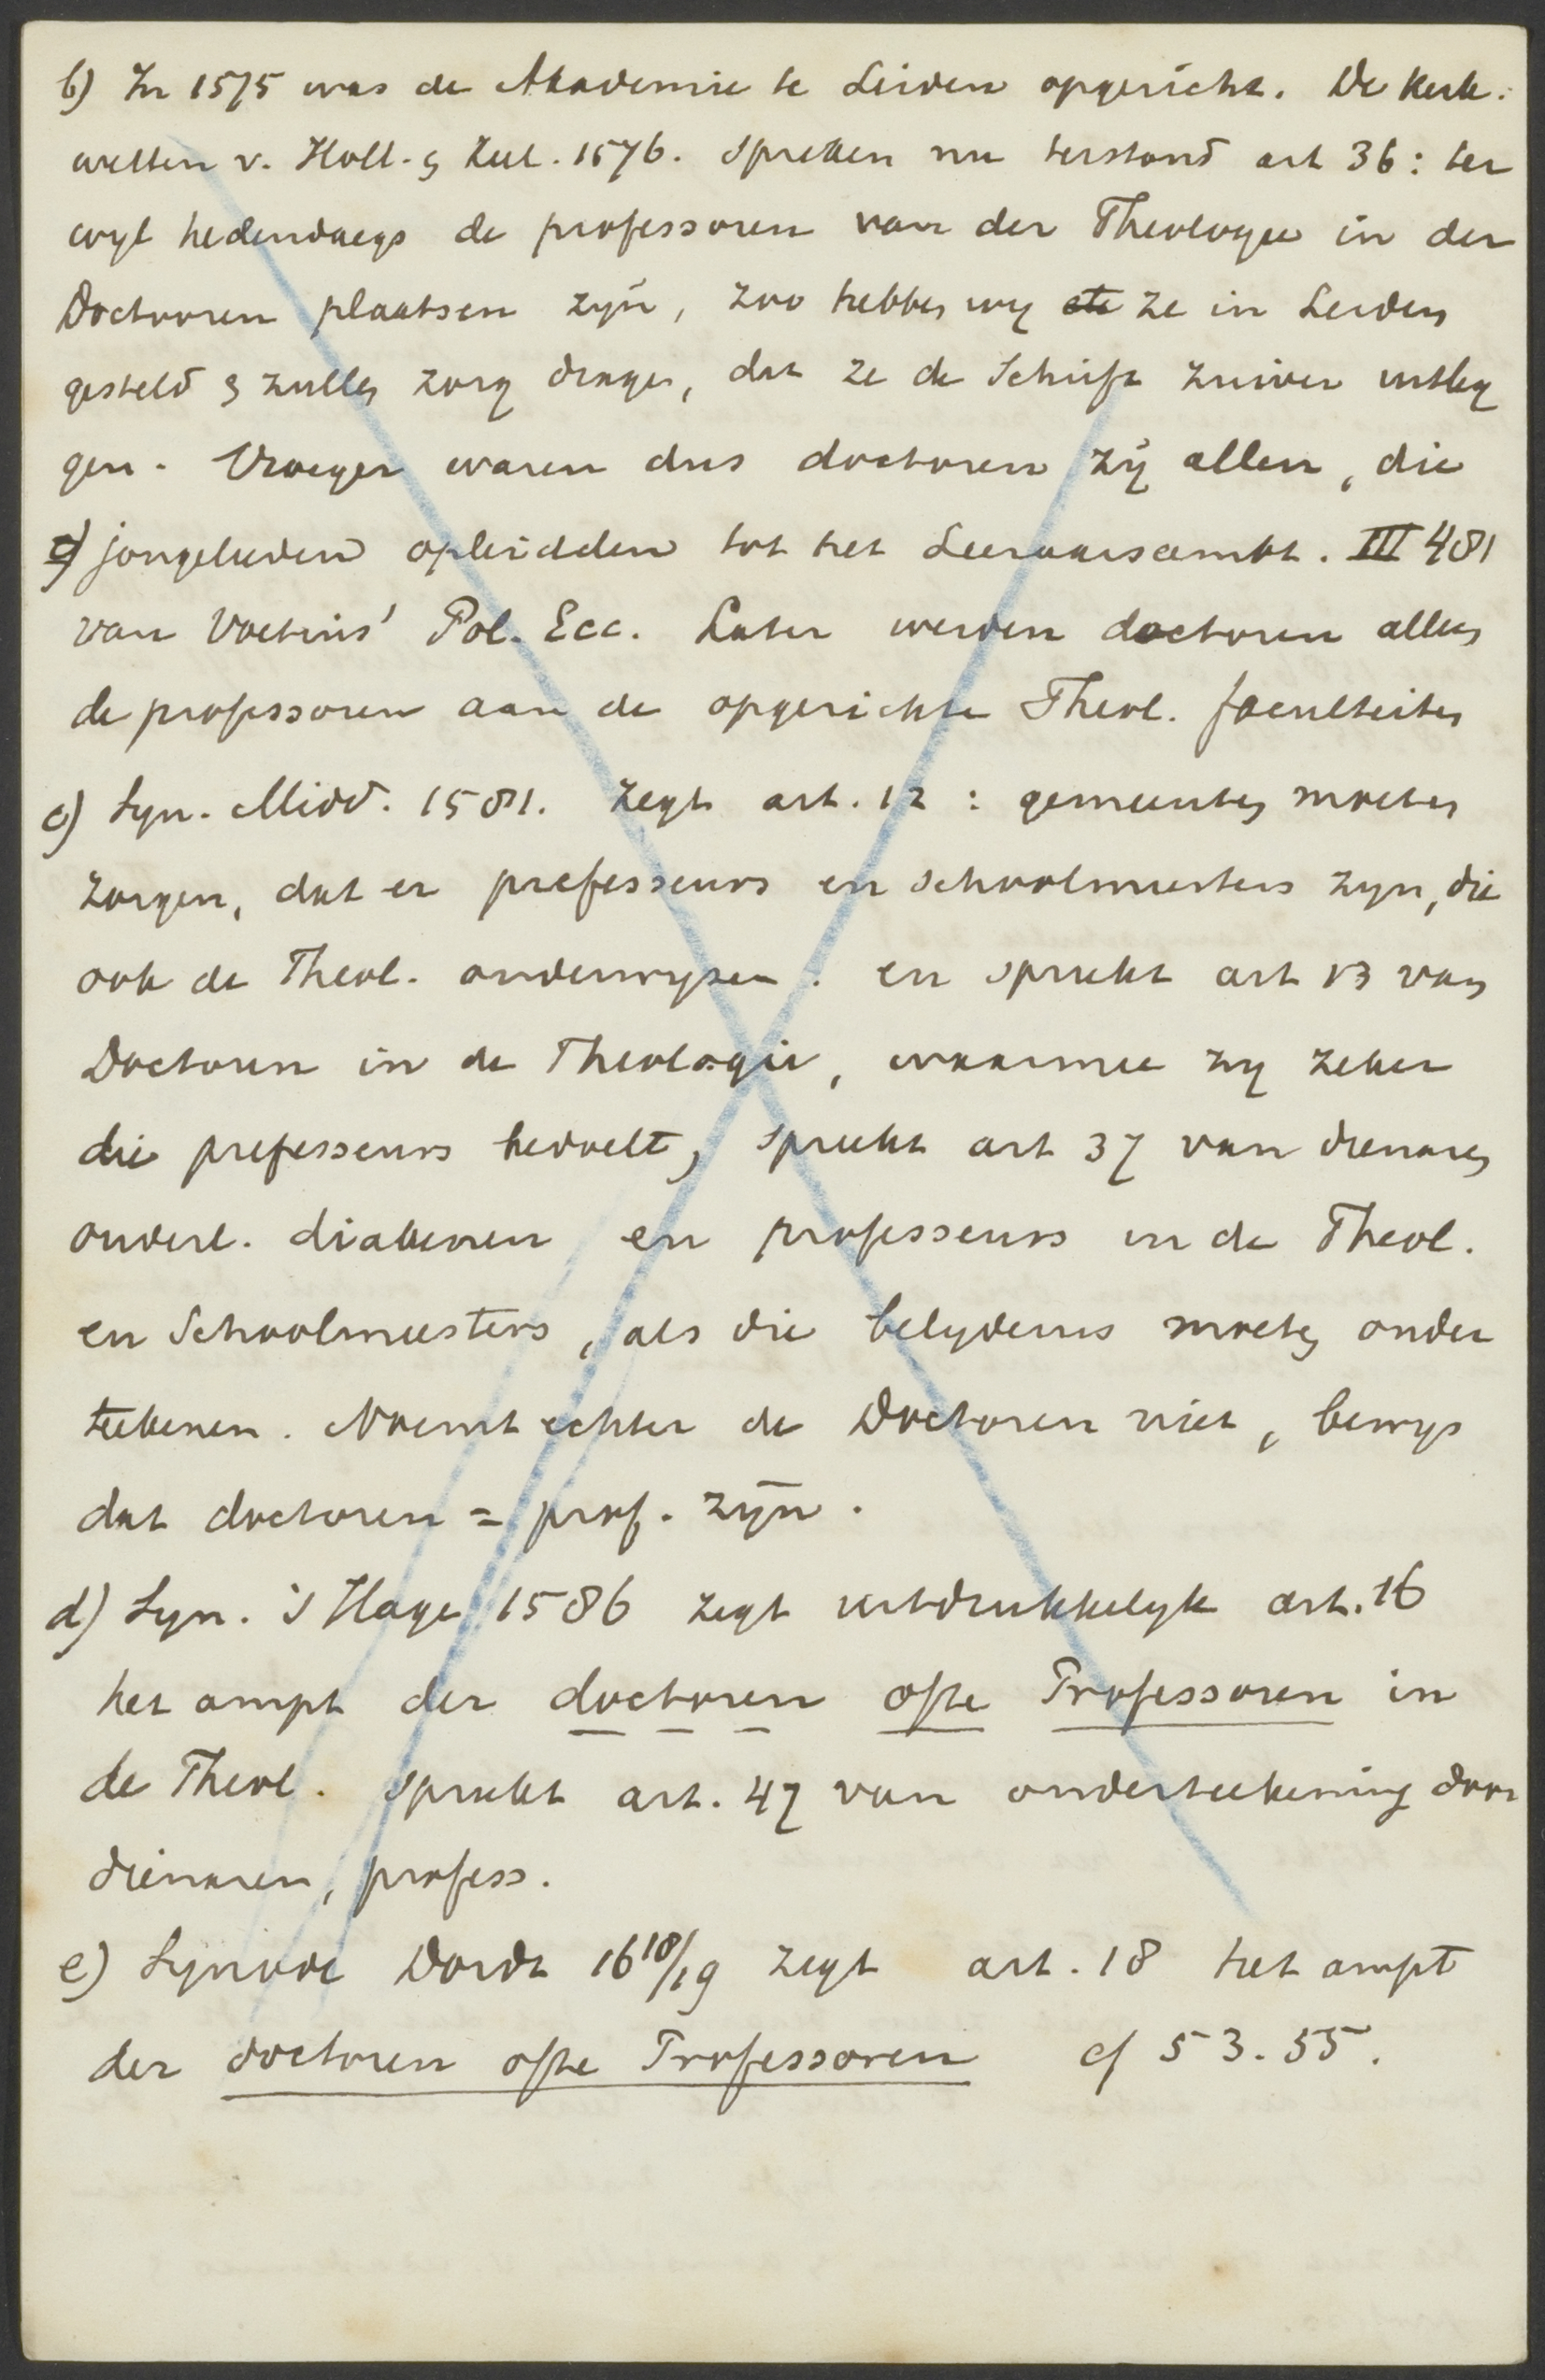 b) In 1575 was de Akademie te Leiden opgericht. De Kerk.
wetten v. Holl. & Zeel. 1576. spreken nu terstond art 36: ter
wyl hedendaegs de professoren van der Theologie in der
Doctooren plaatsen zyn, zoo hebben wy ze in Leiden
gesteld & zullen zorg dragen, dat ze de Schrift zuiver uitleg
gen. Vroeger waren dus doctoren zy allen, die
jongelieden opleidden tot het Leeraarsambt. III 481
van Voetius' Pol. Ecc. Later werden doctoren alleen
de professoren aan de opgerichte Theol. faculteiten
c) Syn. Midd. 1581. zegt art. 12 : gemeenten moeten
zorgen, dat er professeurs en schoolmeesters zyn, die
ook de Theol. onderwyzen. en spreekt art 13 van
Doctoren in de Theologie, waarmee zy zeker
die professeurs bedoelt, spreekt art 37 van dienaren
ouderl. diakenen en professeurs in de Theol.
en Schoolmeesters, als die belydenis moeten onder
teekenen. Noemt echter de Doctoren niet, bewys
dat doctoren = prof. zyn.
d) Syn. 's Hage 1586 zegt uitdrukkelyk art. 16
het ampt der doctoren ofte Professoren in
de Theol. spreekt art. 47 van onderteekening door
dienaren, profess.
e) Synode Dordt 1618/19 zegt art. 18 het ampt
der doctoren ofte Professoren cf 53. 55.